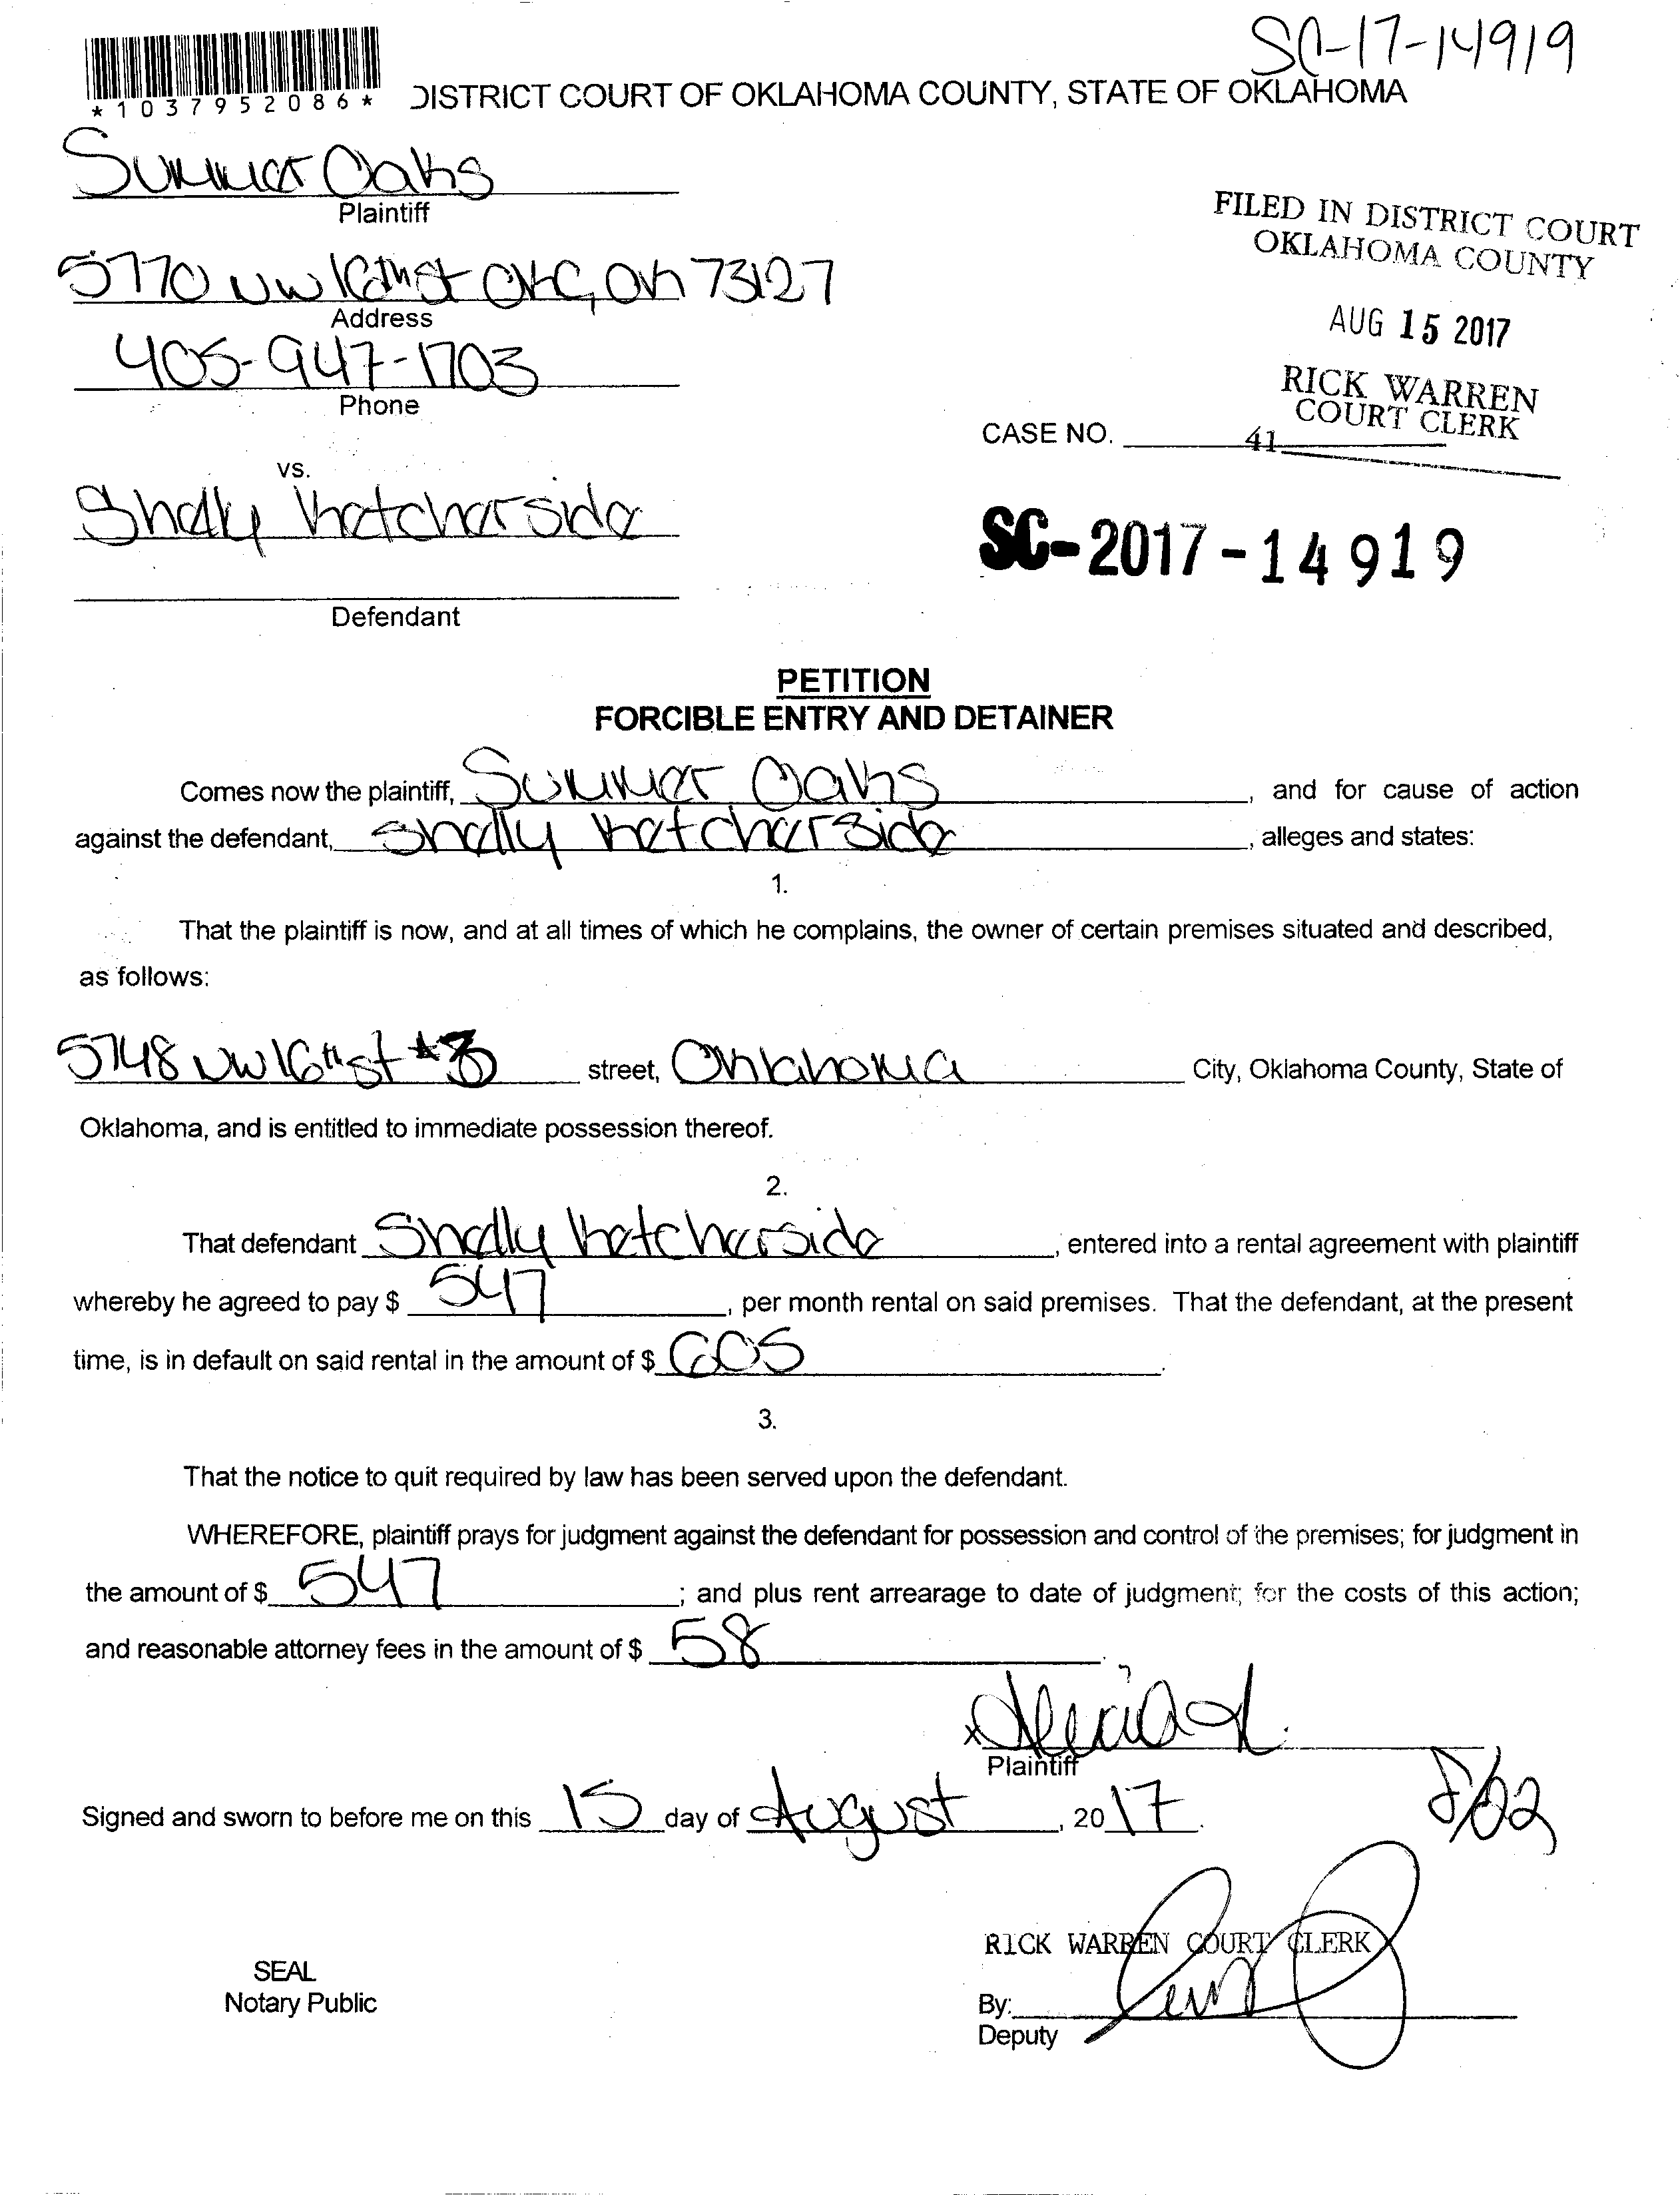 SC-17-14919
*1037952086*
DISTRICT COURT OF OKLAHOMA COUNTY, STATE OF OKLAHOMA
Summer Oaks
Plaintiff
5770 NW 16th St OKC, OK 73127
Address
405-947-1703
Phone
FILED IN DISTRICT COURT
OKLAHOMA COUNTY
AUG 15 2017
RICK WARREN
COURT CLERK
CASE NO.
41
vs.
Shelly
Defendant
SC-2017-14919
PETITION
FORCIBLE ENTRY AND DETAINER
Comes now the plaintiff, Summer Oaks, and for cause of action
against the defendant, Shelly, alleges and states:
1.
That the plaintiff is now, and at all times of which he complains, the owner of certain premises situated and described,
as follows:
5748 NW 16th St #3 street, Oklahoma City, Oklahoma County, State of
Oklahoma, and is entitled to immediate possession thereof.
2.
That defendant Shelly, entered into a rental agreement with plaintiff
whereby he agreed to pay $ 547, per month rental on said premises. That the defendant, at the present
time, is in default on said rental in the amount of $ 605.
3.
That the notice to quit required by law has been served upon the defendant.
WHEREFORE, plaintiff prays for judgment against the defendant for possession and control of the premises; for judgment in
the amount of $ 547; and plus rent arrearage to date of judgment; for the costs of this action;
and reasonable attorney fees in the amount of $ 58.
x
Plaintiff
Signed and sworn to before me on this 15 day of August, 2017.
8/22
RICK WARREN COURT CLERK
SEAL
Notary Public
By:
Deputy